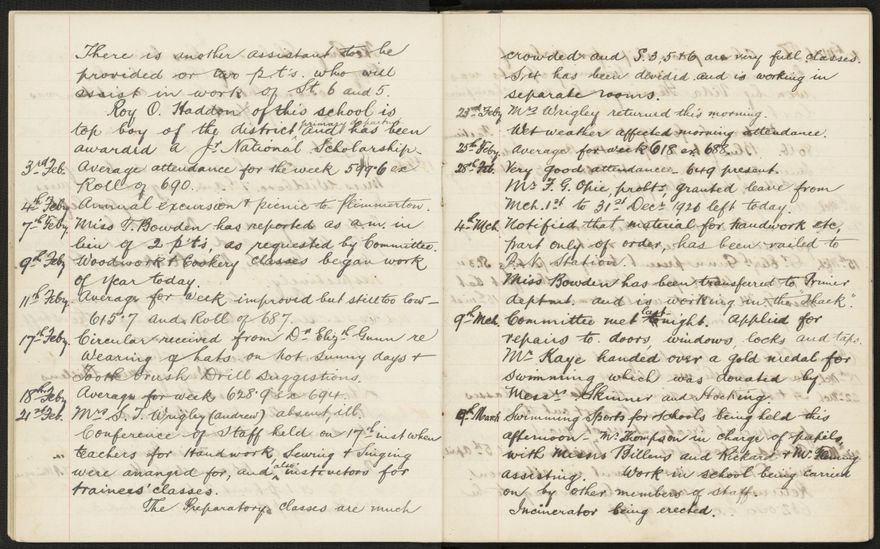 There is another assistant to be
provided or two p.t's. who will
assist in work of St. 6 and 5.
Roy O. Haddon of this school is
top boy of the district primary and has been
awarded a Jr National Scholarship.
3rd Feb. Average attendance for the week 599.6 ex
Roll of 690.
4th Feby Annual excursion & picnic to Plimmerton.
7th Feby Miss T. Bowden has reported as a.m. in
lieu of 2 p.t's, as requested by Committee.
9th Feby Woodwork & Cookery classes began work
of year today.
11th Feby Average for week improved but still too low—
615.7 and Roll of 687.
17th Feby Circular received from Dr Elizth Gunn re
Wearing of hats on hot sunny days &
Tooth Brush Drill suggestions.
18th Feby Average for week 628.9 ex 694.
21st Feb. Mrs S. J. Wrigley (andrew) absent, ill.
Conference of Staff held on 17th inst when
teachers for Handwork, Sewing & Singing
were arranged for, and also instructors for
trainees' classes.
The Preparatory classes are much
crowded and S. 3, 5 & 6 are very full classes.
has been devided and is working in
separate rooms.
23rd Feby Mrs Wrigley returned this morning.
Wet weather affected morning attendance.
25th Feby Average for week 618 ex 688.
28th Feb Very good attendance— 649 present.
Mr F. G. Opie, probr granted leave from
Mch. 1st to 31st Decr 1921 left today.
4th Mch Notified that material for handwork etc,
part only of order, has been railed to
P.N. Station.
Miss Bowden has been transferred to Primer
deptmt. and is working in the "Shack".
9th Mch. Committee met last night. Applied for
repairs to doors, windows, locks and taps.
Mr Kaye handed over a gold medal for
swimming which was donated by
Messrs Skinner and Hocking.
9th March Swimming Sports for Schools being held this
afternoon— Mr Thompson in charge of pupils
with Misses Billens and Rickard & Mr
assisting. Work in school being carried
on by other members of staff.
Incinerator being erected.